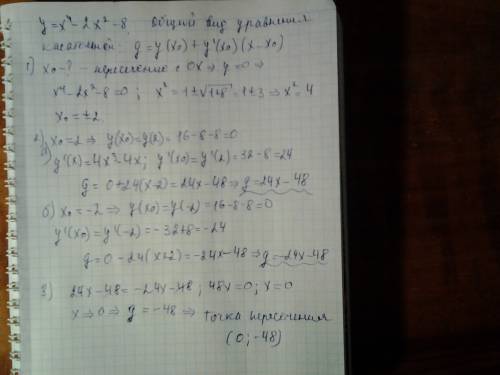 y = x⁴ - 2x² - 8. Общий вид уравнения
касательной g = y(x₀) + y'(x₀)(x - x₀)
1) x₀ - ? - пересечение с OX ⇒ y = 0 ⇒
x⁴ - 2x² - 8 = 0; x² = 1 ± √1+8 = 1 ± 3 ⇒ x² = 4
x₀ = ±2
2) x₀ = 2 ⇒ y(x₀) = y(2) = 16 - 8 - 8 = 0
а) y'(x) = 4x³ - 4x; y'(x₀) = y'(2) = 32 - 8 = 24
g = 0 + 24(x - 2) = 24x - 48 ⇒ g = 24x - 48
б) x₀ = -2 ⇒ y(x₀) = y(-2) = 16 - 8 - 8 = 0
y'(x₀) = y'(-2) = -32 + 8 = -24
g = 0 - 24(x + 2) = -24x - 48 ⇒ g = -24x - 48
3) 24x - 48 = -24x - 48; 48x = 0; x = 0
x ⇒ 0 ⇒ g = -48 ⇒ точка пересечения
(0; -48)